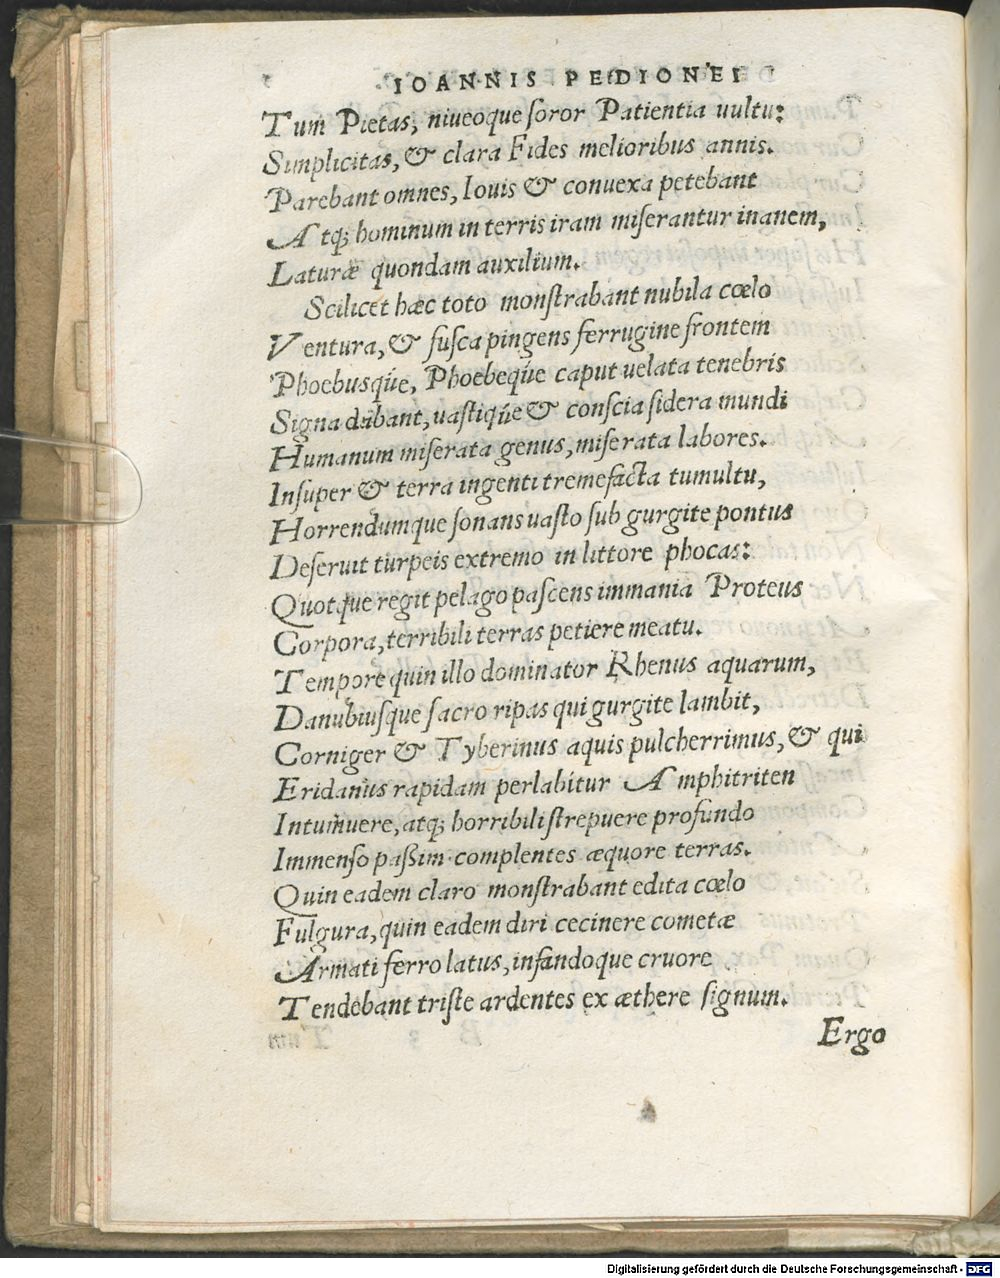 IOANNIS PEDIONEI
Tum Pietas, niueoque ſoror Patientia uultu:
Simplicitas, & clara Fides melioribus annis.
Parebant omnes, Iouis & conuexa petebant
Atq; hominum in terris iram miſerantur inanem,
Laturæ quondam auxilium.
Scilicet hæc toto monſtrabant nubila cœlo
Ventura, & fuſca pingens ferrugine frontem
Phoebusq́ue, Phoebeq́ue caput uelata tenebris
Signa dabant, uaſtiq́ue & conſcia ſidera mundi
Humanum miſerata genus, miſerata labores.
Inſuper & terra ingenti tremefacta tumultu,
Horrendumque ſonans uaſto ſub gurgite pontus
Deſeruit turpeis extremo in littore phocas:
Quotque regit pelago paſcens immania Proteus
Corpora, terribili terras petiere meatu.
Tempore quin illo dominator Rhenus aquarum,
Danubiuſque ſacro ripas qui gurgite lambit,
Corniger & Tyberinus aquis pulcherrimus, & qui
Eridanus rapidam perlabitur Amphitriten
Intumuere, atq; horribili ſtrepuere profundo
Immenſo paßim complentes æquore terras.
Quin eadem claro monſtrabant edita cœlo
Fulgura, quin eadem diri cecinere cometæ
Armati ferro latus, infandoque cruore
Tendebant triſte ardentes ex æthere ſignum.
Ergo
Digitalisierung gefördert durch die Deutsche Forschungsgemeinschaft - DFG